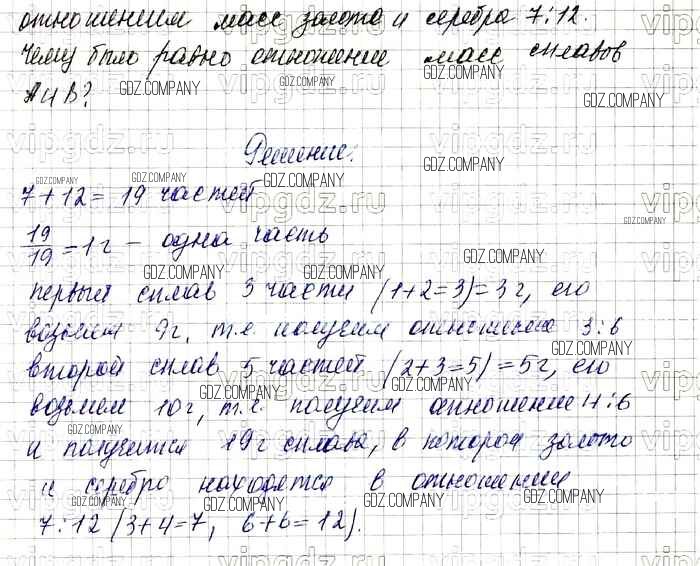 отношении масс золота и серебра 7:12.
Чему было равно отношение масс сплавов
А и В?
Решение.
7+12 = 19 частей
19/19 = 1 г – одна часть
первый сплав 3 части (1+2=3)=3г, его
возьмем 9г, т.е. получим отношение 3:6
второй сплав 5 частей (2+3=5)=5г, его
возьмем 10г, т.е. получим отношение 4:6
и получится 19г сплава, в котором золото
и серебро находятся в отношении
7:12 (3+4=7, 6+6=12).